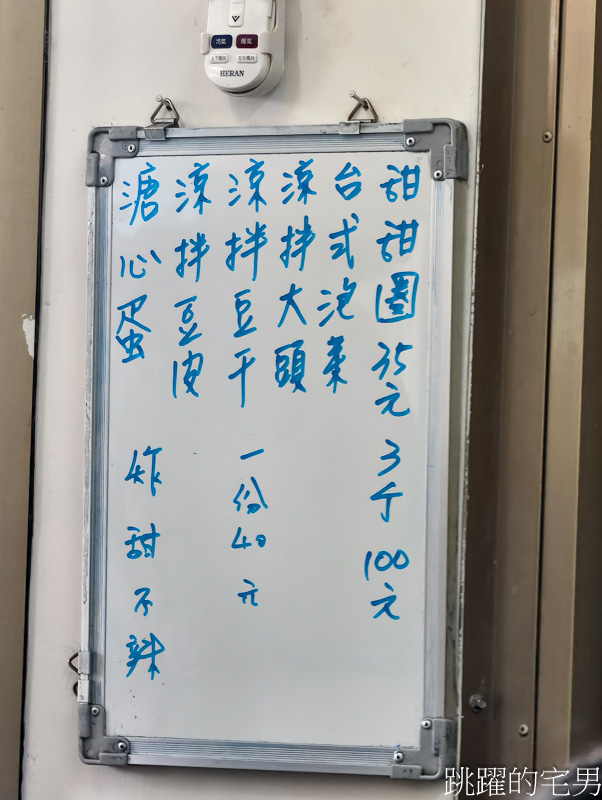 冷氣
暖氣
上下風向
左右風向
HERAN
甜甜圈35元 3个100元
台式泡菜
涼拌大頭
涼拌豆干 一份40元
涼拌豆皮
溏心蛋 炸甜不辣
跳躍的宅男